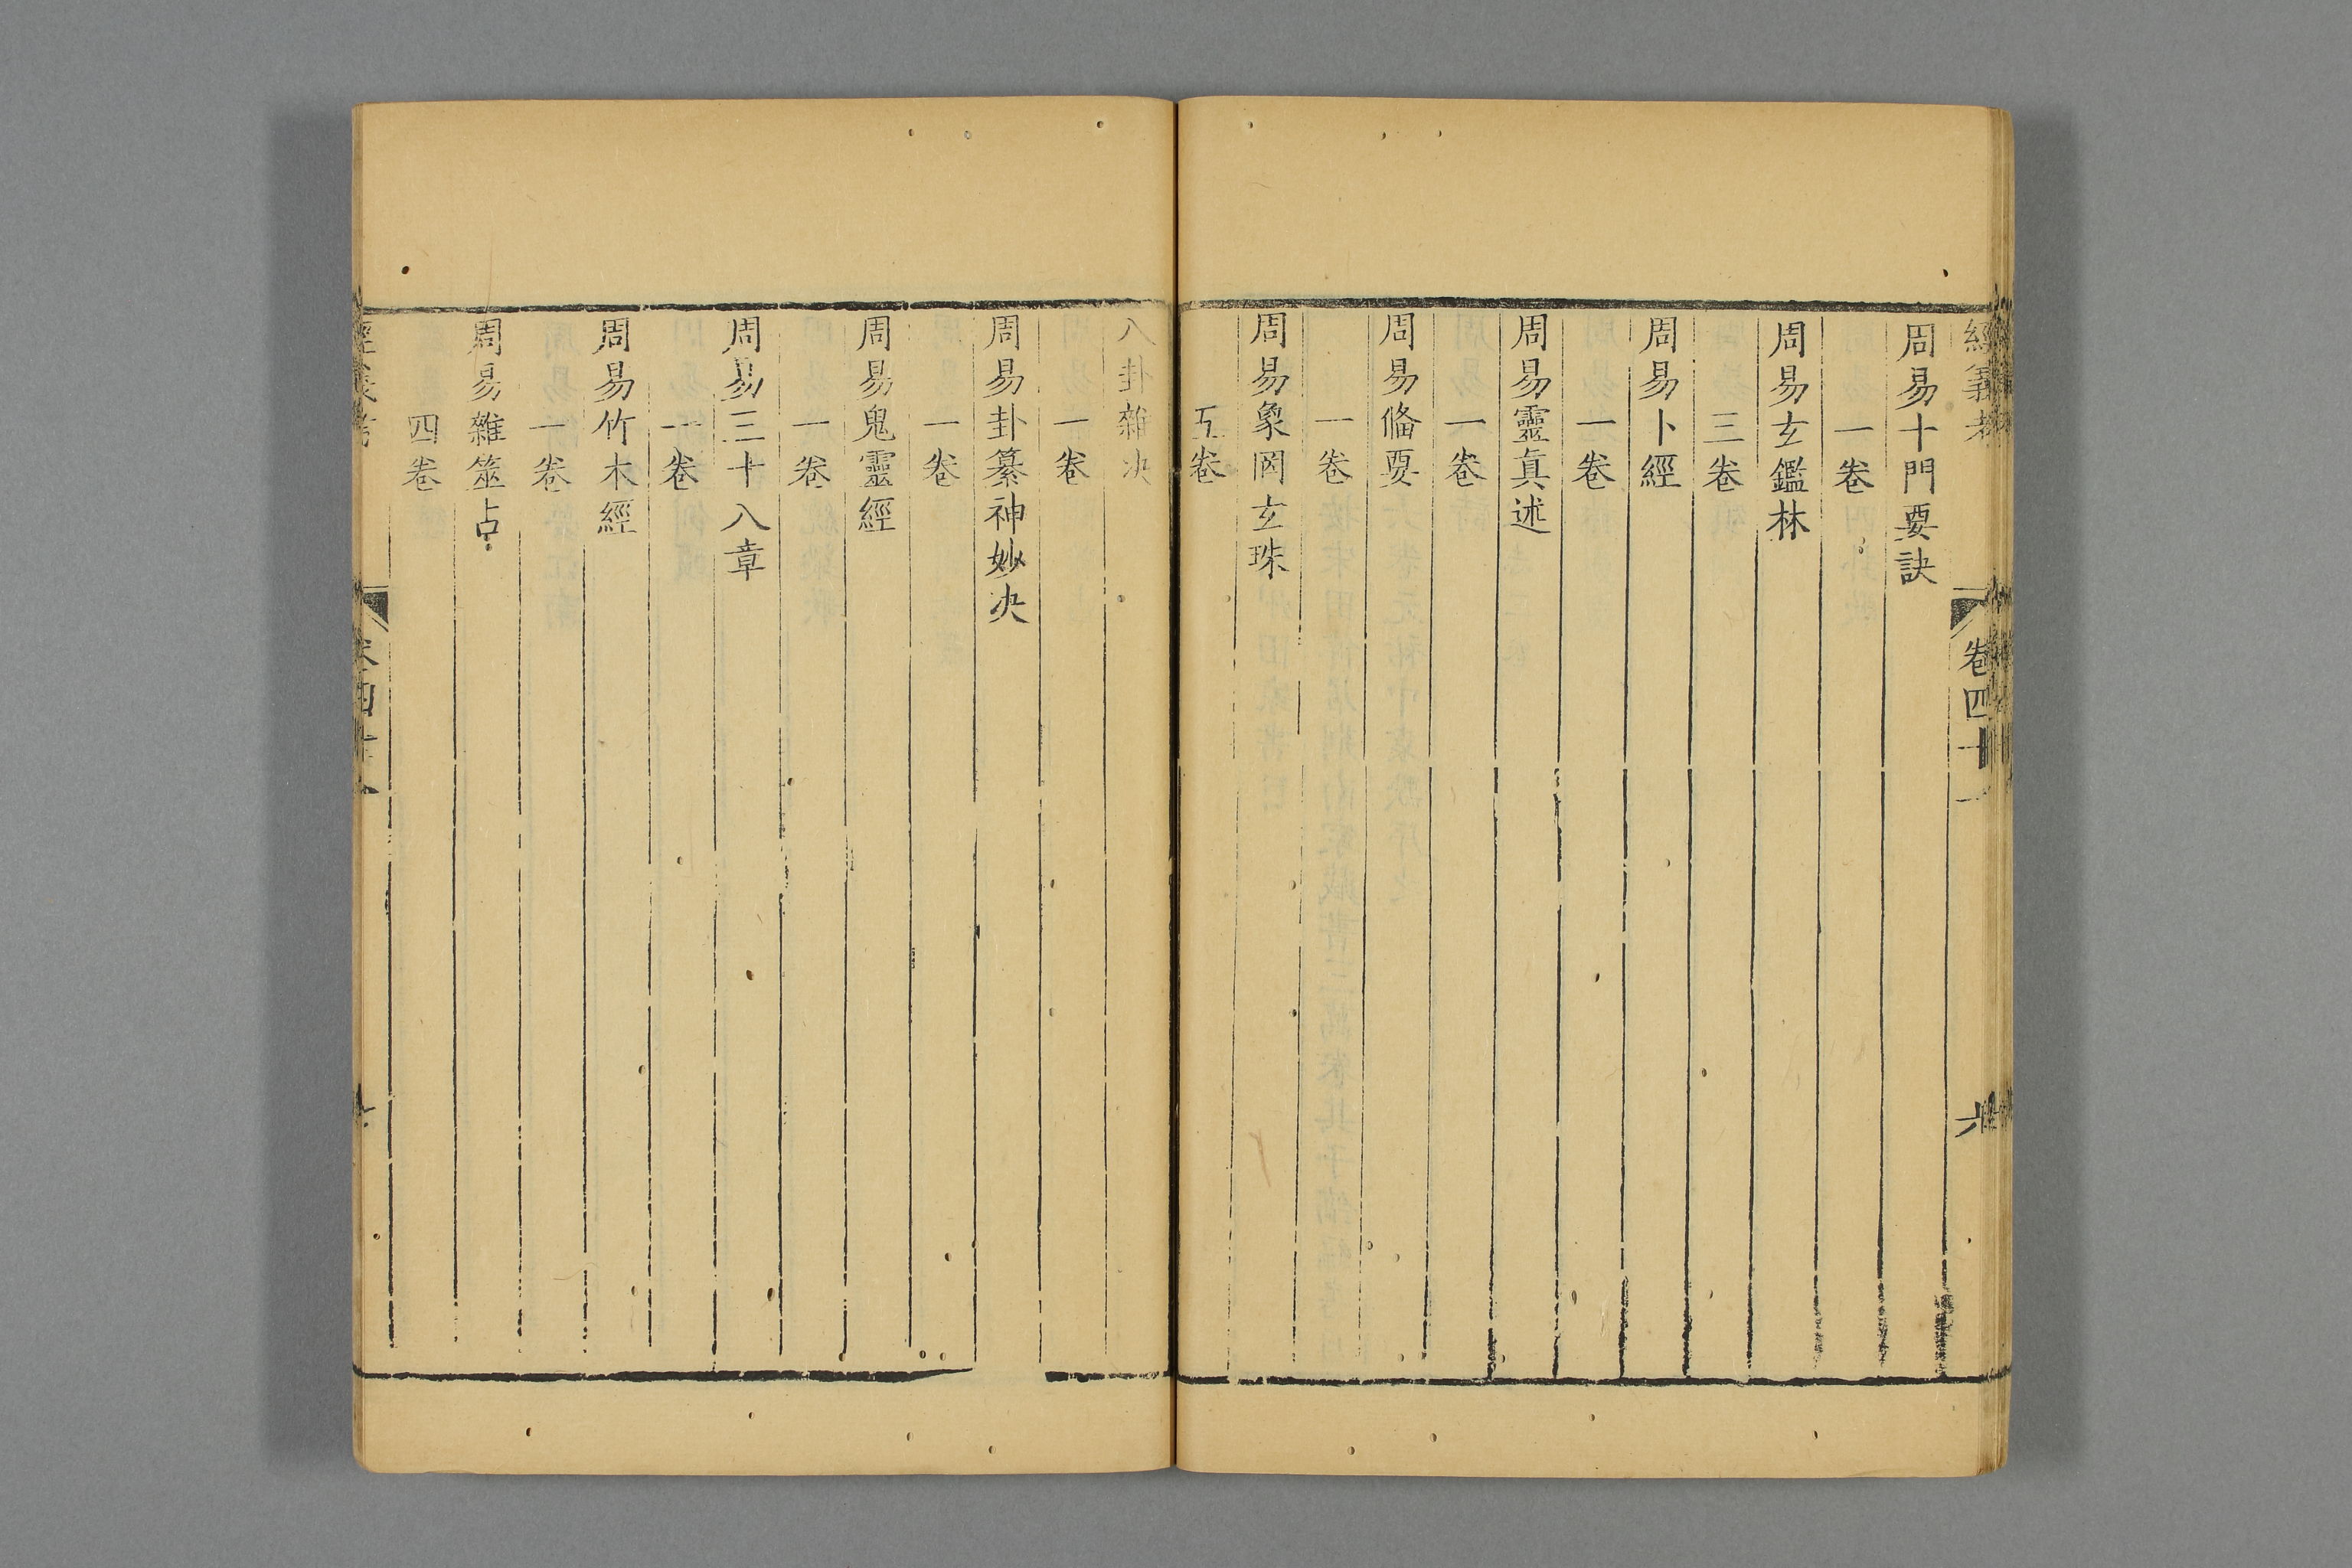 經義考 卷四十一 六
周易十門要訣
一卷
周易玄鑑林
三卷
周易卜經
一卷
周易靈眞述
一卷
周易偹要
一卷
周易象罔玄珠
五卷
八卦雜决
一卷
周易卦纂神妙决
一卷
周易鬼靈經
一卷
周易三十八章
一卷
周易竹木經
一卷
周易雜筮占
四卷